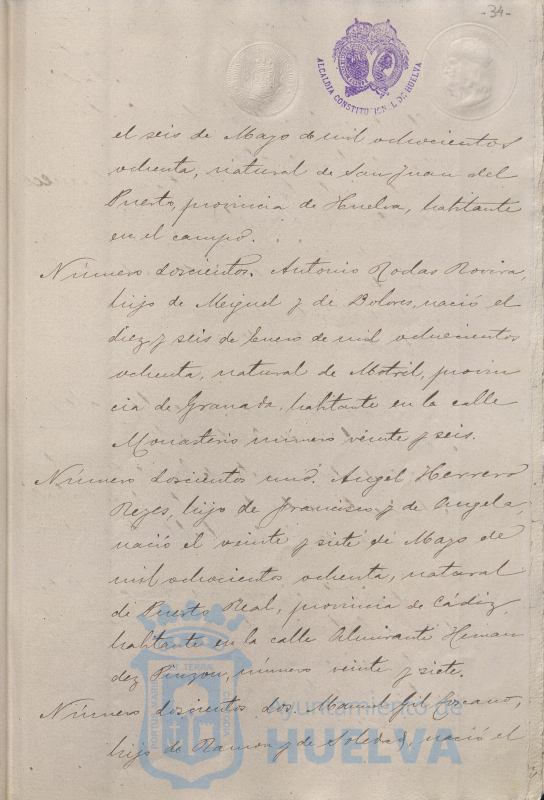 -34-
ALCALDIA CONSTITUCIONAL DE HUELVA
el seis de Mayo de mil ochocientos
ochenta, natural de San Juan del
Puerto, provincia de Huelva, habitante
en el campo.
Número doscientos. Antonio Rodas Rovira,
hijo de Miguel y de Dolores, nació el
diez y seis de Enero de mil ochocientos
ochenta, natural de Motril, provin
cia de Granada, habitante en la calle
Monasterio número veinte y seis.
Número doscientos uno. Angel Herrero
Reyes, hijo de Francisco y de Angela,
nació el veinte y siete de Mayo de
mil ochocientos ochenta, natural
de Puerto Real, provincia de Cádiz,
habitante en la calle Almirante Hernan
dez Pinzon, número veinte y siete.
Número doscientos dos. Manuel Gil Lozano,
hijo de Ramon y de Soledad, nació el
Ayuntamiento de
HUELVA